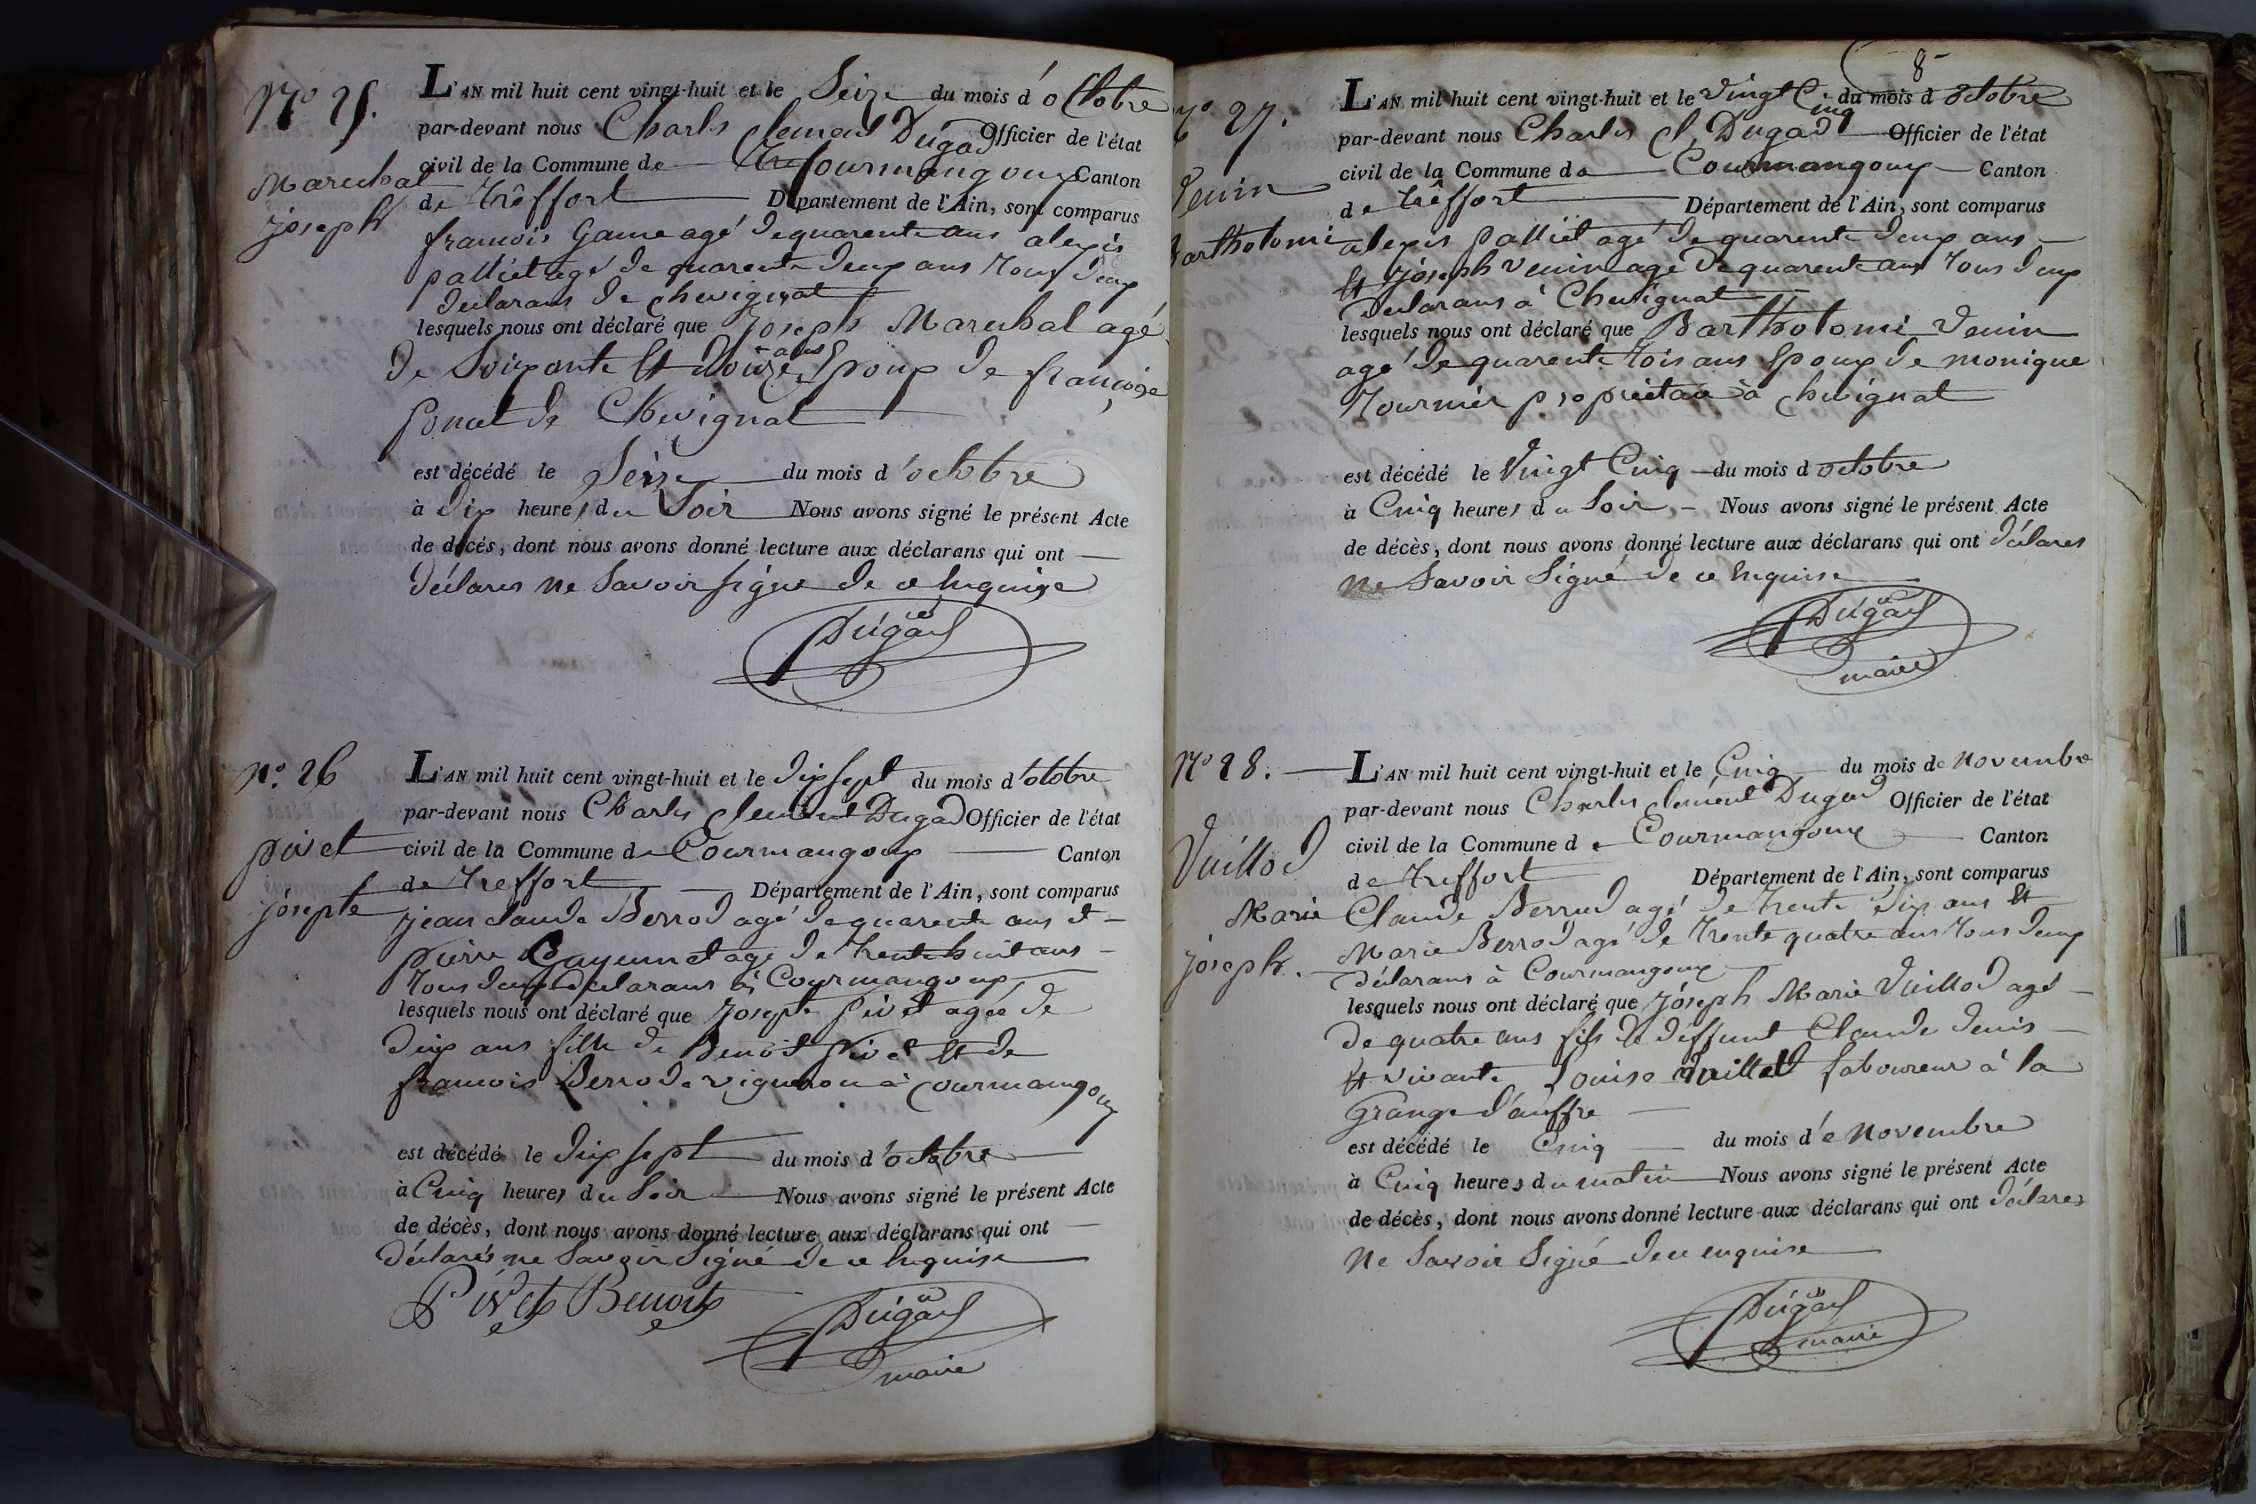 N° 25.
Marechal
joseph
L'AN mil huit cent vingt-huit et le Seize du mois d'octobre
par-devant nous Charles Clement Dugad Officier de l'état
civil de la Commune de Courmangoux Canton
de Trêffort Département de l'Ain, sont comparus
francois Game agé de quarente ans alexis
palliet agé de quarente deux ans tous deux
declarans de chevignat
lesquels nous ont déclaré que joseph Marechal agé
de Soixante et douze ans Epoux de francoise
poncet de Chevignat
est décédé le Seize du mois d'octobre
à dix heures du Soir Nous avons signé le présent Acte
de décès, dont nous avons donné lecture aux déclarans qui ont
déclarés ne Savoir signé de ce Enquise
Dugad
N° 26
pivet
josephte
L'AN mil huit cent vingt-huit et le dix sept du mois d'octobre
par-devant nous Charles Clement Dugad Officier de l'état
civil de la Commune de Courmangoux Canton
de Treffort Département de l'Ain, sont comparus
jean claude Berrod agé de quarente ans et
pierre agé de trente huit ans
tous deux declarans à Courmangoux
lesquels nous ont déclaré que josephte pivet agée de
deux ans fille de Benoit pivet et de
francoise Berrod vigneron à Courmangoux
est décédé le dix sept du mois d'octobre
à Cinq heures du Soir Nous avons signé le présent Acte
de décès, dont nous avons donné lecture aux déclarans qui ont
déclarés ne Savoir Signé de ce Enquise
Pivet Benoit
Dugad
maire
8
N° 27.
Venin
Bartholomi
L'AN mil huit cent vingt-huit et le vingt Cinq du mois d octobre
par-devant nous Charles Cl, Dugad Officier de l'état
civil de la Commune de Courmangoux Canton
de trêffort Département de l'Ain, sont comparus
alexis palliet agé de quarente deux ans
Et joseph venin agé de quarente ans tous deux
declarans à Chevignat
lesquels nous ont déclaré que Bartholomi Venin
agé de quarente trois ans Epoux de monique
Tournier proprietaire à chevignat
est décédé le Vingt Cinq du mois d octobre
à Cinq heures du Soir Nous avons signé le présent Acte
de décès, dont nous avons donné lecture aux déclarans qui ont déclarés
ne Savoir Signé de ce Enquise
Dugad
maire
N° 28.
Vuillod
Marie
joseph.
L'AN mil huit cent vingt-huit et le Cinq du mois de novembre
par-devant nous Charles clément Dugad Officier de l'état
civil de la Commune de Courmangoux Canton
de Treffort Département de l'Ain, sont comparus
Claude Berrud agé de trente dix ans Et
Marie Berrod agé de trente quatre ans tous deux
déclarans à Courmangoux
lesquels nous ont déclaré que joseph Marie Vuillod agé
de quatre ans fils de déffunt Claude denis
Et vivante Louise laboureur à la
Grange d'
est décédé le Cinq du mois d'e novembre
à Cinq heures du matin Nous avons signé le présent Acte
de décès, dont nous avons donné lecture aux déclarans qui ont déclarés
ne Savoir Signé de ce enquise
Dugad
maire